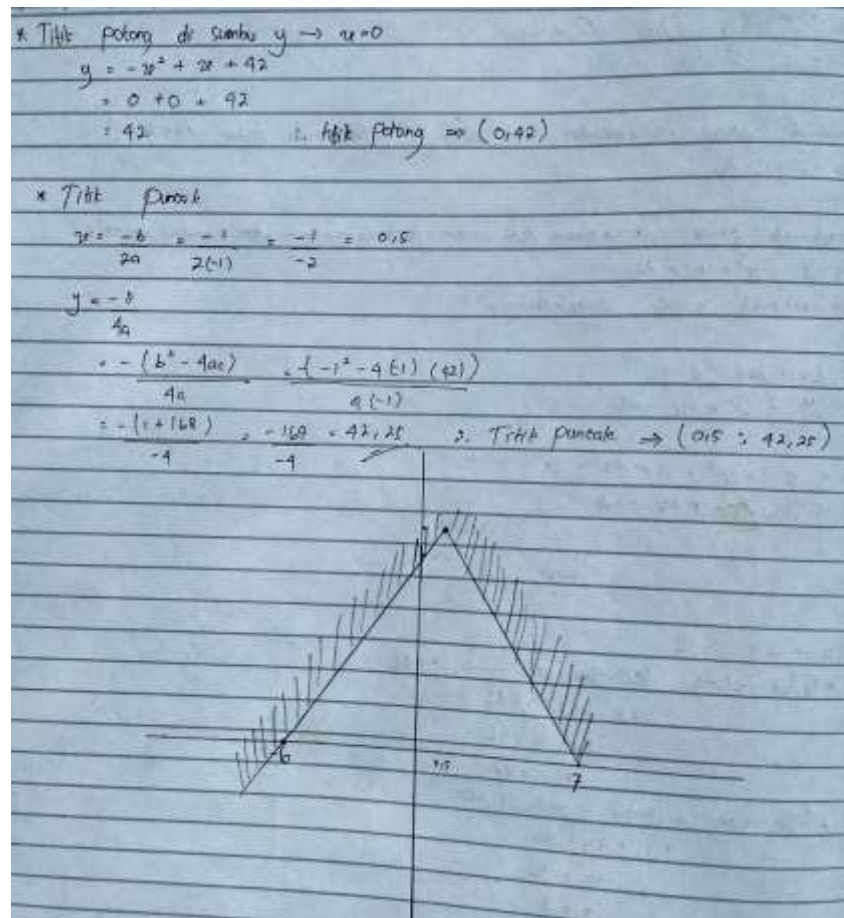 * Titik potong di sumbu y → x=0
y = -x² + x + 42
= 0 + 0 + 42
= 42 ∴ titik potong ⇒ (0,42)
* Titik puncak
x = -b/2a = -1/2(-1) = -1/-2 = 0,5
y = -D/4a
= -(b² - 4ac)/4a = -(-1² - 4(-1)(42))/4(-1)
= -(1+168)/-4 = -169/-4 = 42,25 ∴ Titik puncak → (0,5 ; 42,25)
-6 0,5 7